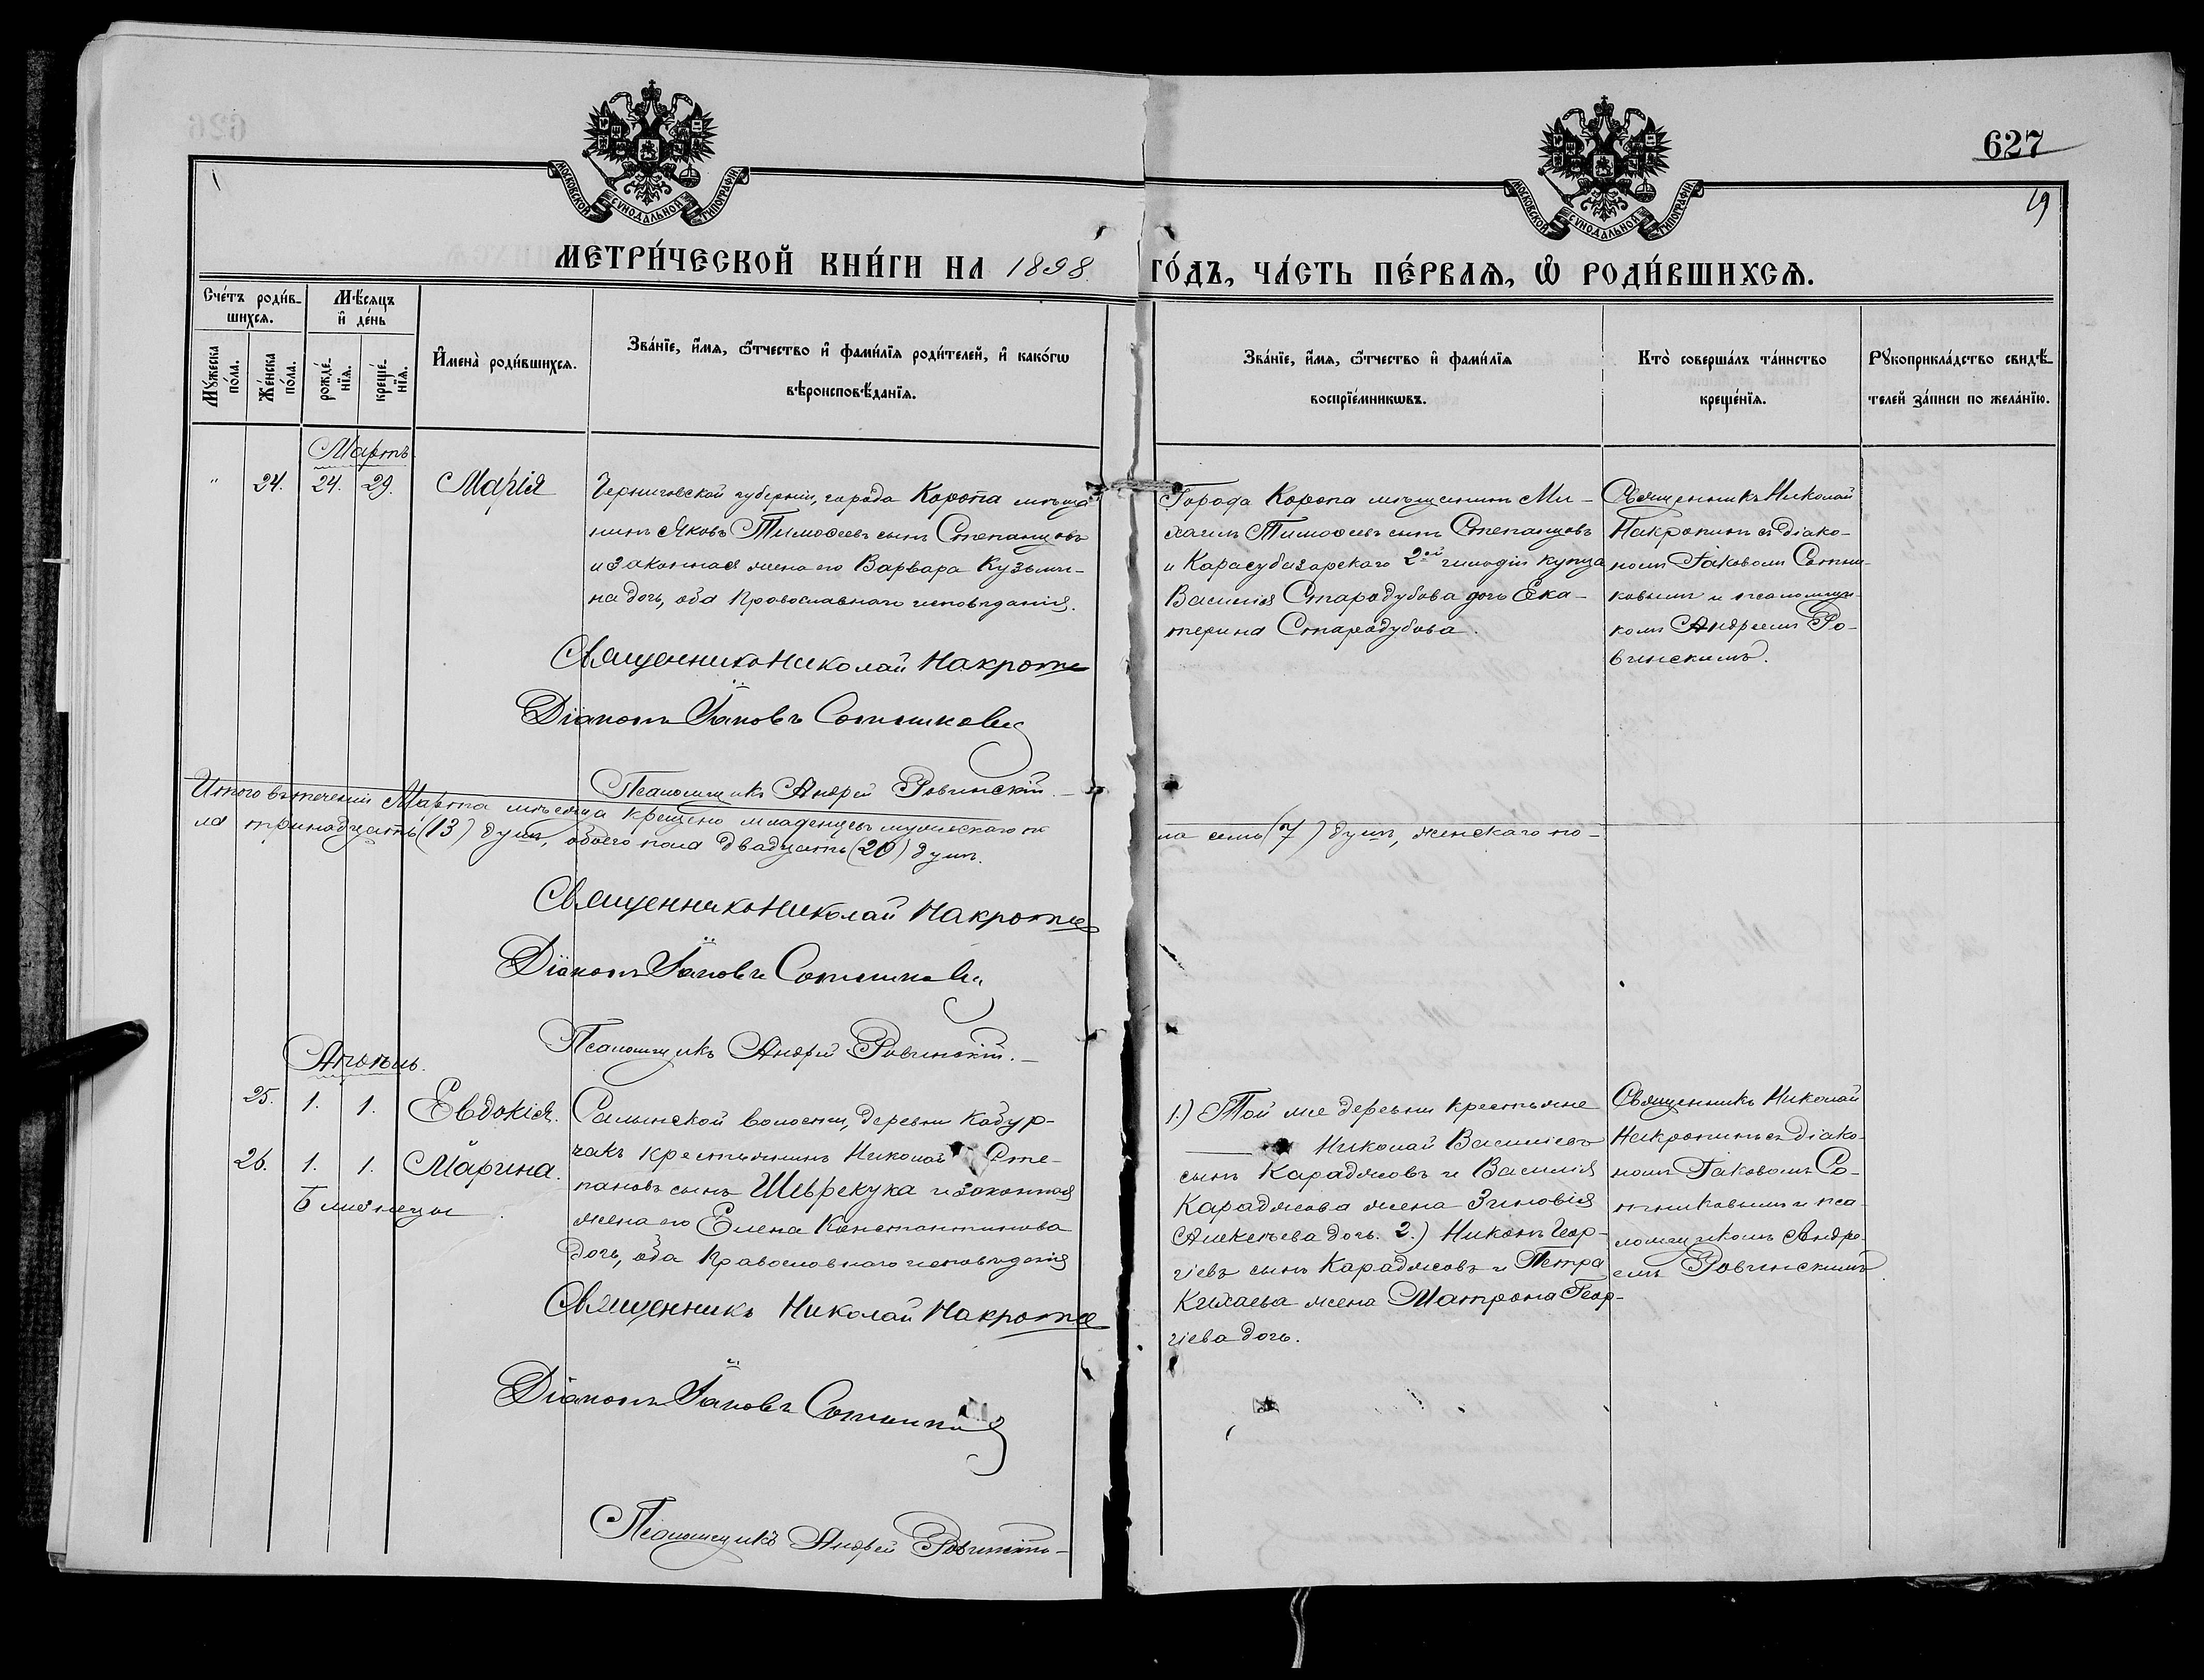 627
19
МОСКОВСКОЙ СѴНОДАЛЬНОЙ ТИПОГРАФІИ
МОСКОВСКОЙ СѴНОДАЛЬНОЙ ТИПОГРАФІИ
МЕТРИ́ЧЕСКОЙ КНИ́ГИ НА 1898 ГО́ДЪ, ЧА́СТЬ ПЕ́РВАѦ, Ѽ РОДИ́ВШИХСѦ.
Сче́тъ роди́в-
шихсѧ.
Мꙋ́жеска
по́ла.
Же́нска
по́ла.
Мѣ́сѧцъ
и҆ де́нь
рожде́-
нїѧ.
креще́-
нїѧ.
И҆мена̀ роди́вшихсѧ.
Зва́нїе, и҆́мѧ, ѻ҆́тчество и҆ фами́лїѧ роди́телей, и҆ како́гѡ
вѣроисповѣ́данїѧ.
Зва́нїе, и҆́мѧ, ѻ҆́тчество и҆ фами́лїѧ
воспрїе́мникѡвъ.
Кто̀ соверша́лъ та́инство
креще́нїѧ.
Рꙋкоприкла́дство свидѣ́-
телей за́писи по жела́нїю.
Мартъ
" 24. 24. 29. Марія
Черниговской губерніи, города Коропа мѣща-
нинъ Яковъ Тимоѳеевъ сынъ Степанцовъ
и законная жена его Варвара Кузьми-
на дочь, оба Православнаго исповѣданія.
Города Коропа мѣщанинъ Ми-
хаилъ Тимоѳеевъ сынъ Степанцовъ
и Карасубазарскаго 2ой гильдіи купца
Василія Стародубова дочь Ека-
терина Стародубова.
Священникъ Николай
Накропинъ съ діако-
номъ Іаковомъ Сотни-
ковымъ и псаломщи-
комъ Андреемъ Ро-
винскимъ.
Священникъ Николай Накропинъ
Діаконъ Іаковъ Сотниковъ
Псаломщикъ Андрей Ровинскій.
Итого въ теченіи Марта мѣсяца крещено младенцевъ мужескаго по-
ла семь (7) душъ, женскаго по-
ла тринадцать (13) душъ, обоего пола двадцать (20) душъ.
Священникъ Николай Накропинъ
Діаконъ Іаковъ Сотниковъ
Псаломщикъ Андрей Ровинскій.
Апрѣль.
25. 1. 1. Евдокія.
26. 1. 1. Марина.
Близнецы
Салынской волости, деревни Кабур-
чакъ крестьянинъ Николай Сте-
пановъ сынъ Шеврекука и законная
жена его Елена Константинова
дочь, оба Православнаго исповѣданія
1.) Той же деревни крестьяне
Николай Василіевъ
сынъ Караджовъ и Василія
Караджова жена Зиновія
Алексѣева дочь. 2.) Никонъ Геор-
гіевъ сынъ Караджовъ и Петра
Кихаева жена Матрона Геор-
гіева дочь.
Священникъ Николай
Накропинъ съ діако-
номъ Іаковомъ Со-
тниковымъ и пса-
ломщикомъ Андре-
емъ Ровинскимъ.
Священникъ Николай Накропинъ
Діаконъ Іаковъ Сотниковъ
Псаломщикъ Андрей Ровинскій